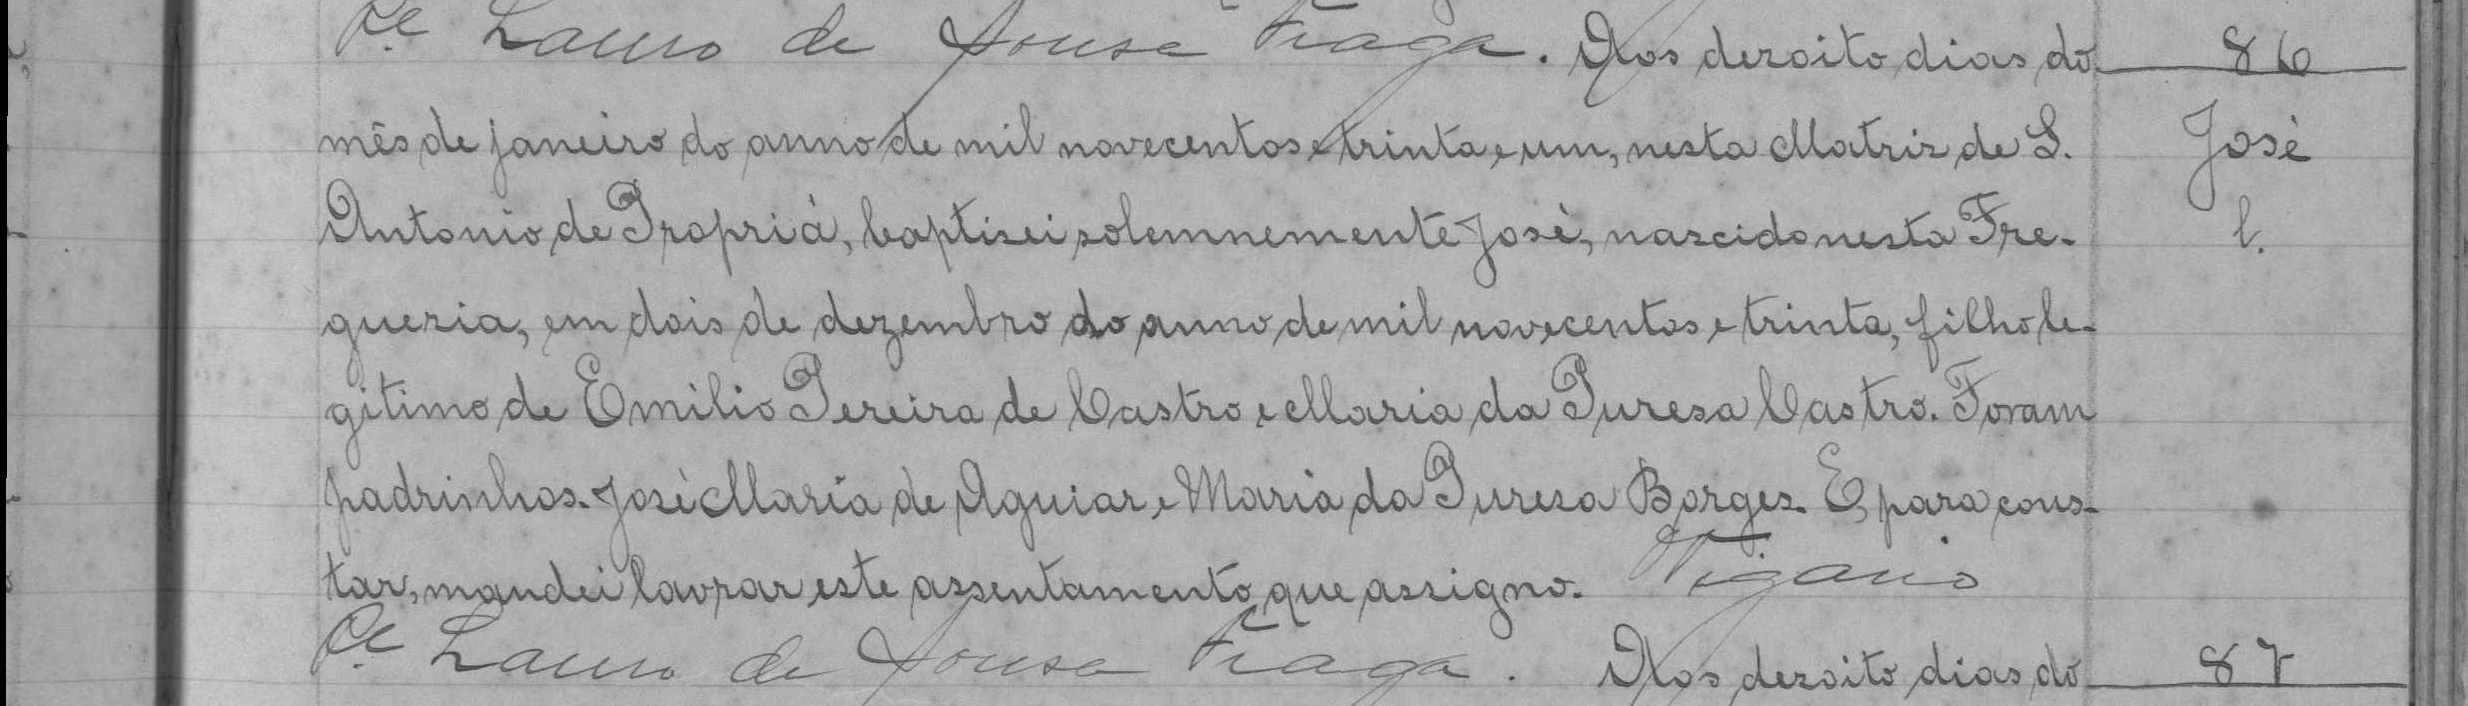 Pe. Lauro de Sousa Fraga. Aos dezoito dias do 86
mês de janeiro do anno de mil novecentos e trinta e um, nesta Matriz de S. José
Antonio de Propriá, baptisei solemnemente José, nascido nesta Fre- l.
guezia, em dois de dezembro do anno de mil novecentos e trinta, filho le-
gitimo de Emilio Pereira de Castro e Maria da Puresa Castro. Foram
padrinhos. José Maria de Aguiar e Maria da Puresa Borges. E, para cons-
tar, mandei lavrar este assentamento, que assigno. Vigario
Pe. Lauro de Sousa Fraga. Aos dezoito dias do 87